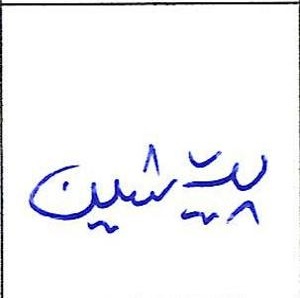 پێشین